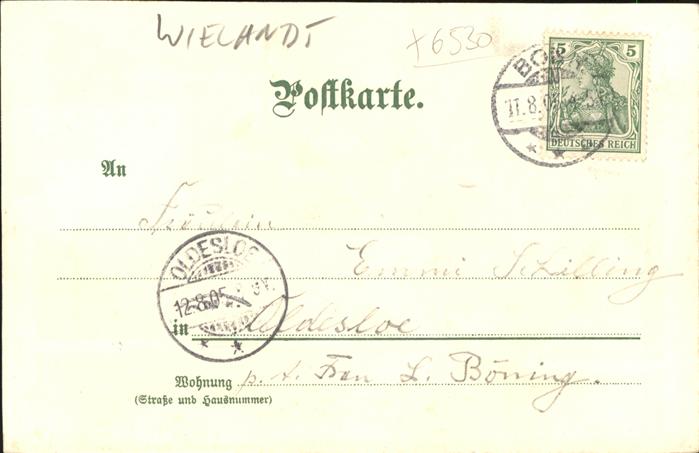 WIELANDT +6530
5 5
DEUTSCHES REICH
11.8.05
Postkarte.
An
Fräulein
Emmi Schilling
OLDESLOE
12.8.05
in Oldesloe
Wohnung p. A. Frau L. Böning.
(Straße und Hausnummer)